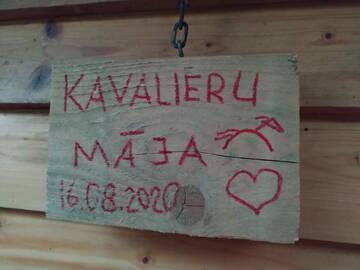 KAVALIERU
MĀJA
16.08.2020